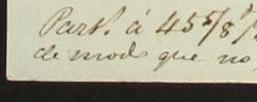 Part. á 45 5/8
de modo que no